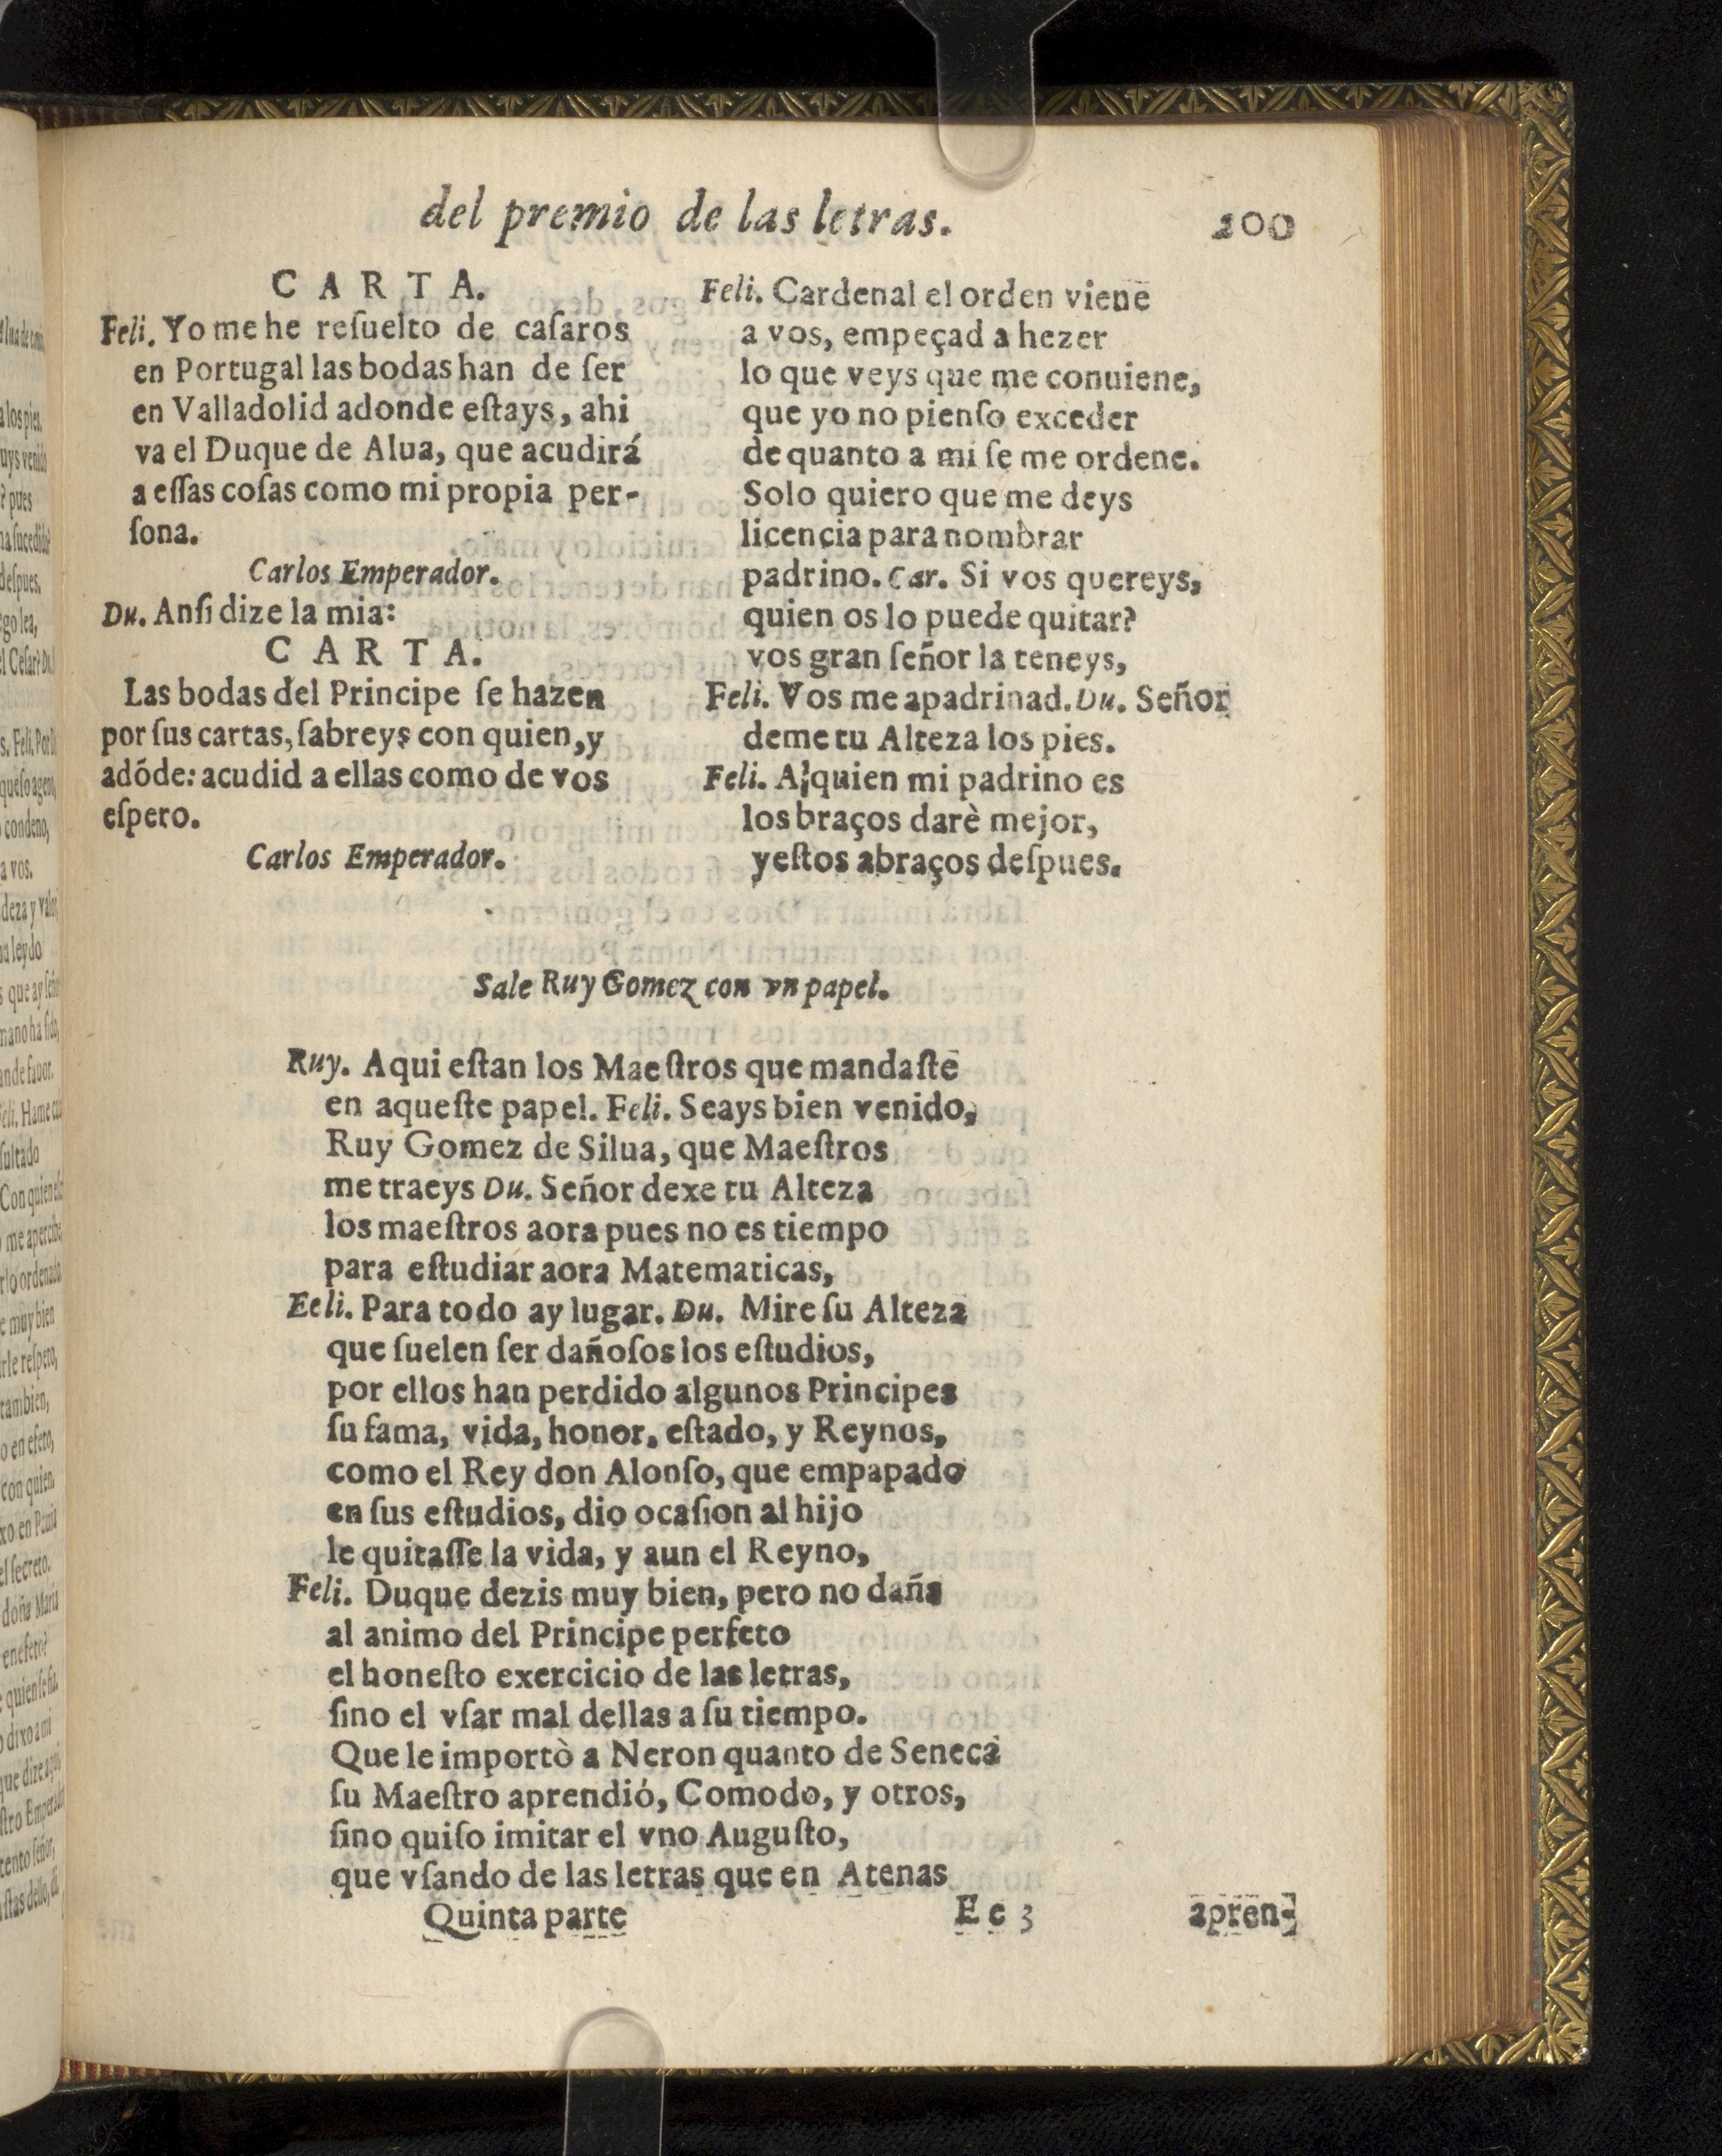 del premio de las letras. 200
C A R T A.
Feli. Yo me he reſuelto de caſaros
en Portugal las bodas han de ſer
en Valladolid adonde eſtays, ahi
va el Duque de Alua, que acudirá
a eſſas coſas como mi propia per-
ſona.
Carlos Emperador.
Du. Anſi dize la mia:
C A R T A.
Las bodas del Principe ſe hazen
por ſus cartas, ſabreys con quien, y
adóde: acudid a ellas como de vos
eſpero.
Carlos Emperador.
Feli. Cardenal el orden viene
a vos, empeçad a hezer
lo que veys que me conuiene,
que yo no pienſo exceder
de quanto a mi ſe me ordene.
Solo quiero que me deys
licencia para nombrar
padrino. Car. Si vos quereys,
quien os lo puede quitar?
vos gran ſeñor la teneys,
Feli. Vos me apadrinad. Du. Señor
deme tu Alteza los pies.
Feli. A quien mi padrino es
los braços darè mejor,
y eſtos abraços deſpues.
Sale Ruy Gomez con vn papel.
Ruy. Aqui eſtan los Maeſtros que mandaſte
en aqueſte papel. Feli. Seays bien venido,
Ruy Gomez de Silua, que Maeſtros
me traeys Du. Señor dexe tu Alteza
los maeſtros aora pues no es tiempo
para eſtudiar aora Matematicas,
Eeli. Para todo ay lugar. Du. Mire ſu Alteza
que ſuelen ſer dañoſos los eſtudios,
por ellos han perdido algunos Principes
ſu fama, vida, honor, eſtado, y Reynos,
como el Rey don Alonſo, que empapado
en ſus eſtudios, dio ocaſion al hijo
le quitaſſe la vida, y aun el Reyno,
Feli. Duque dezis muy bien, pero no daña
al animo del Principe perfeto
el honeſto exercicio de las letras,
ſino el vſar mal dellas a ſu tiempo.
Que le importò a Neron quanto de Seneca
ſu Maeſtro aprendió, Comodo, y otros,
ſino quiſo imitar el vno Auguſto,
que vſando de las letras que en Atenas
Quinta parte Ee 3 apren-